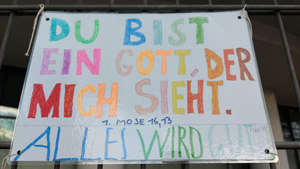 DU BIST
EIN GOTT, DER
MICH SIEHT.
1. MOSE 16,13
ALLES WIRD GUT